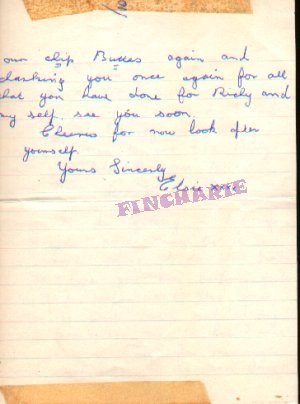 2
our chip Buttes again and
thanking you once again for all
that you have done for Ricky and
my self. see you soon.
Cheerio for now look after
yourself.
Yours Sincerly
Elsie xxx
FINCHARIE